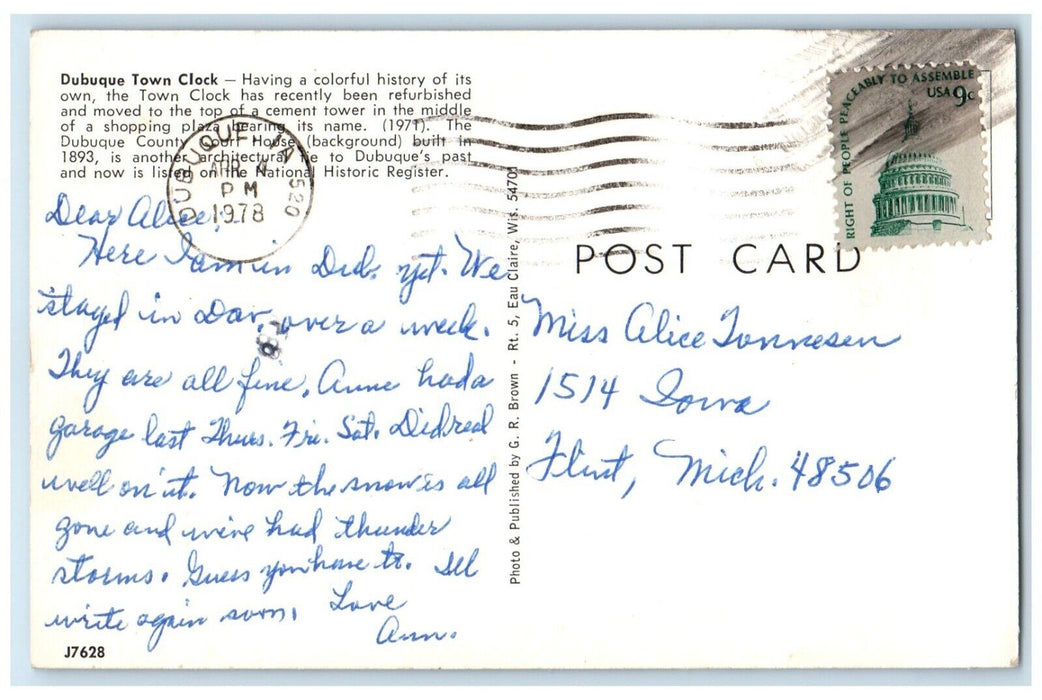 Dubuque Town Clock — Having a colorful history of its
own, the Town Clock has recently been refurbished
and moved to the top of a cement tower in the middle
of a shopping plaza bearing its name. (1971). The
Dubuque County Court House (background) built in
1893, is another architectural tie to Dubuque's past
and now is listed on the National Historic Register.
DUBUQUE, IA 520
APR 4
PM
1978
RIGHT OF PEOPLE PEACEABLY TO ASSEMBLE
USA 9c
POST CARD
Dear Alice,
Here I am in Dub. yet. We
stayed in Dav. over a week.
They are all fine. Anne had a
garage last Thurs. Fri. Sat. Did real
well on it. Now the snow is all
gone and we've had thunder
storms. Guess you have to. I'll
write again soon. Love
Ann.
Photo & Published by G. R. Brown - Rt. 5, Eau Claire, Wis. 54701
Miss Alice Tonnesen
1514 Iowa
Flint, Mich. 48506
J7628